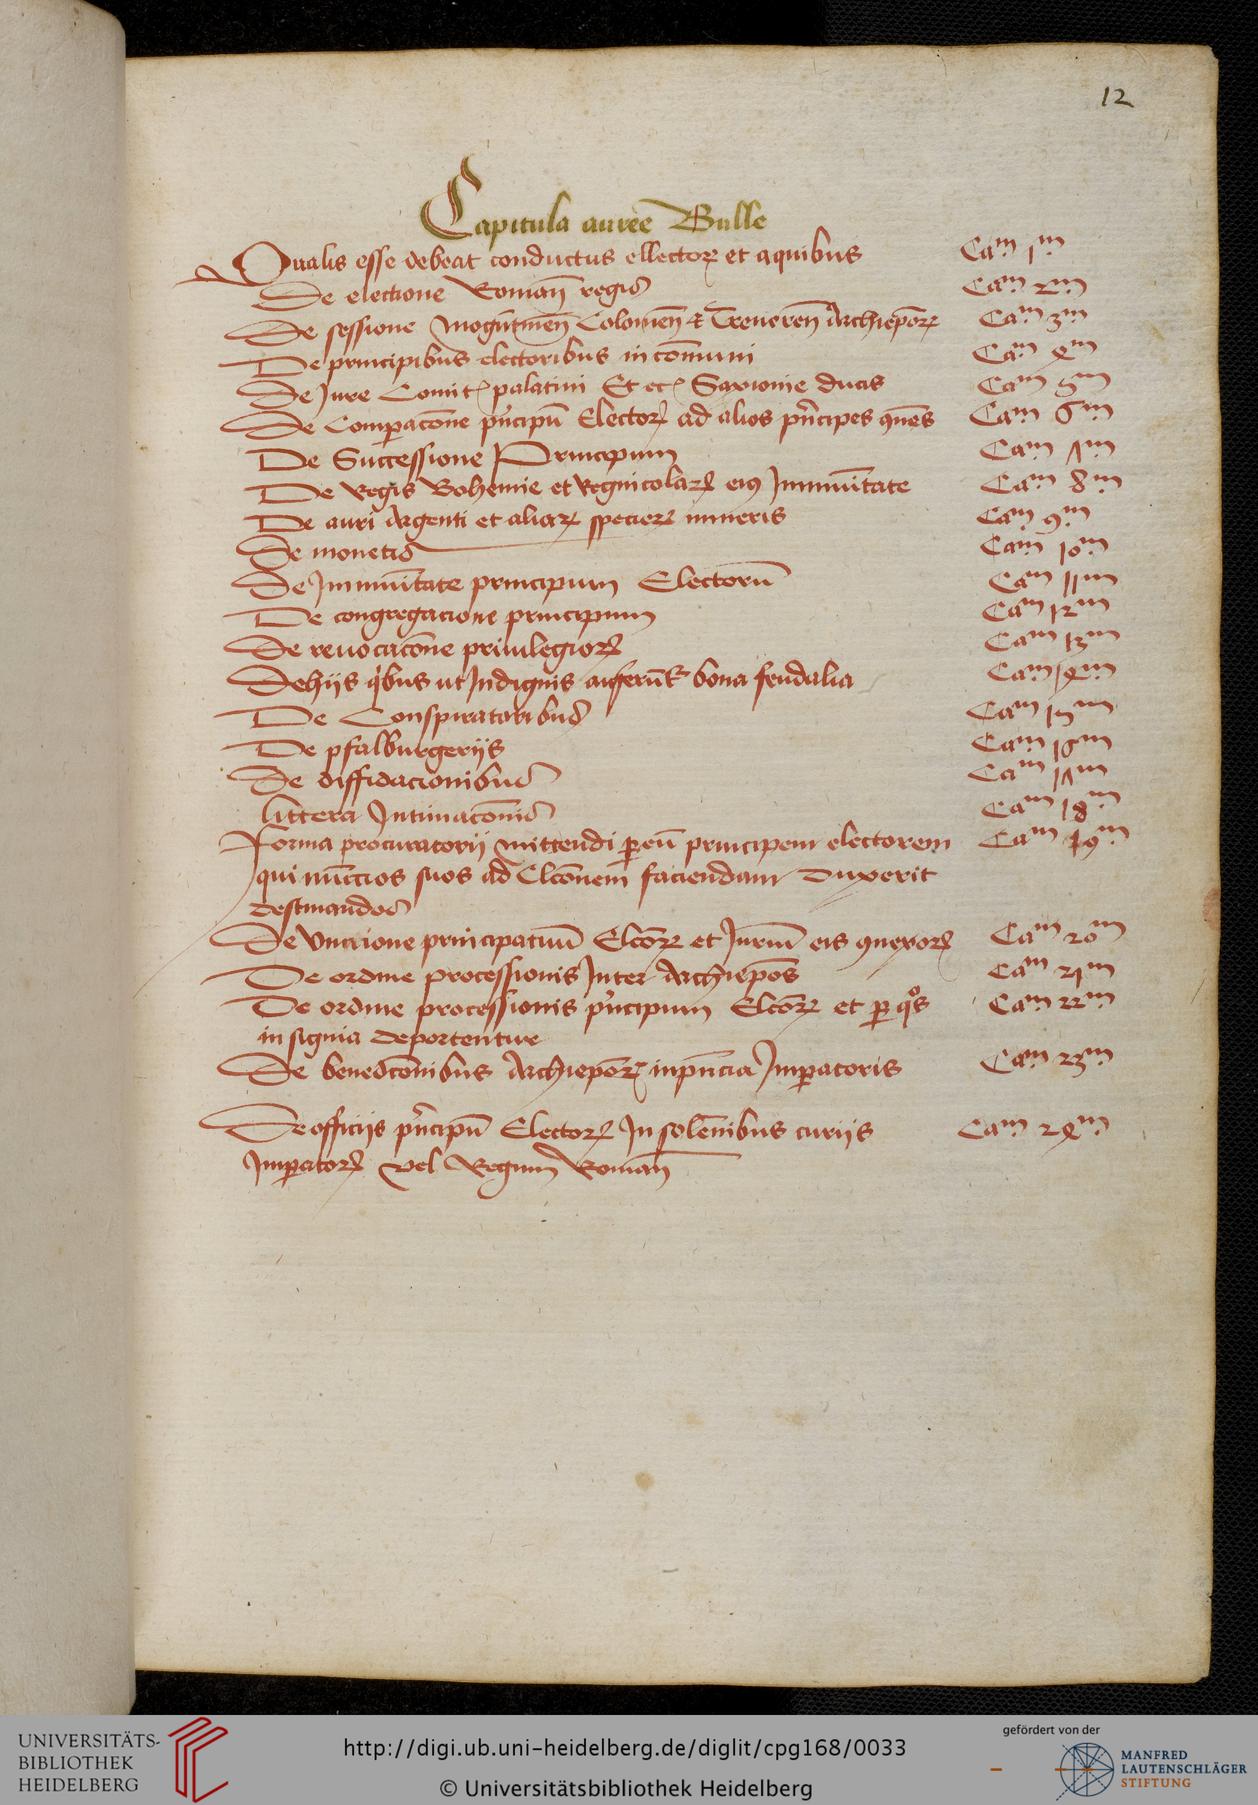 12
Capitula auree Bulle
Qualis esse debeat conductus ellectorꝝ et aquibus Cam 1m
De electione Romañ regis Cam 2m
De sessione Mogũtineñ Colonieñ ⁊ Treuereñ Archiepōrꝝ Cam 3m
De principibus electoribus in cōmuni Cam 4m
De Jure Comit palatini Et etc Saxonie ducis Cam 5m
De Comparacōne pͥncipū Electorꝝ ad alios pͥncipes ꝯmūes Cam 6m
De Successione Principum Cam 7m
De Regis Bohemie et Regnicolarꝝ eiꝰ Jmmuītate Cam 8m
De auri Argenti et aliarꝝ specierꝝ mineris Cam 9m
De monetis Cam 10m
De Jmmuītate principum Electorū Cam 11m
De congregacione principum Cam 12m
De reuocacōne priuilegiorꝝ Cam 13m
Dehijs qͥbus ut Jndignis auferūt᷑ bona feudalia Cam 14m
De Conspiratoribus Cam 15m
De pfalburgerijs Cam 16m
De diffidacionibus Cam 17m
littera Jntimacōnis Cam 18m
Forma procuratorij mittendi ꝑ eū principem electorem Cam 19m
qui nūccios suos ad Elcōnem faciendam duxerit
destinandos
De Vnctione principatuū Elcōrꝝ et Juriū eis ꝯnexorꝝ Cam 20m
De ordine processionis Jnter Archiepōs Cam 21m
De ordine processionis pͥncipum Elcōrꝝ et ꝑ qͦs Cam 22m
in signia deportentur
De benedcōnibus Archiepōrꝝ in pn̄cia Jmꝑatoris Cam 23m
De officijs pͥncipū Electorꝝ Jn solēnibus curijs Cam 24m
Jmꝑatorꝝ vel Regum Romañ
UNIVERSITÄTS-
BIBLIOTHEK
HEIDELBERG
http://digi.ub.uni-heidelberg.de/diglit/cpg168/0033
© Universitätsbibliothek Heidelberg
gefördert von der
MANFRED
LAUTENSCHLÄGER
STIFTUNG